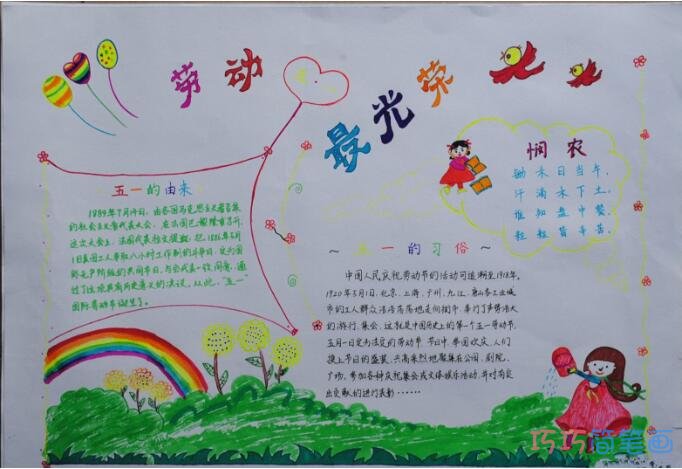 劳动
最光荣
五一的由来
1889年7月14日，由各国马克思主义者召集
的社会主义者代表大会，在法国巴黎隆重召开。
这次大会上，法国代表拉文提议：把1886年5月
1日美国工人争取八小时工作制的斗争日，定为国
际无产阶级的共同节日。与会代表一致同意，通
过了这项具有历史意义的决议。从此，“五一”
国际劳动节诞生了。
悯农
锄禾日当午，
汗滴禾下土。
谁知盘中餐，
粒粒皆辛苦。
～五一的习俗～
中国人民庆祝劳动节的活动可追溯至1918年。
1920年5月1日，北京、上海、广州、九江、唐山各工业城
市的工人群众浩浩荡荡地走向街市、举行了声势浩大
的游行、集会。这就是中国历史上的第一个五一劳动节。
五月一日定为法定的劳动节 节日中，举国欢庆，人们
换上节日的盛装，兴高采烈地聚集在公园、剧院、
广场，参加各种庆祝集会或文体娱乐活动，并对有突
出贡献的进行表彰……
巧巧简笔画